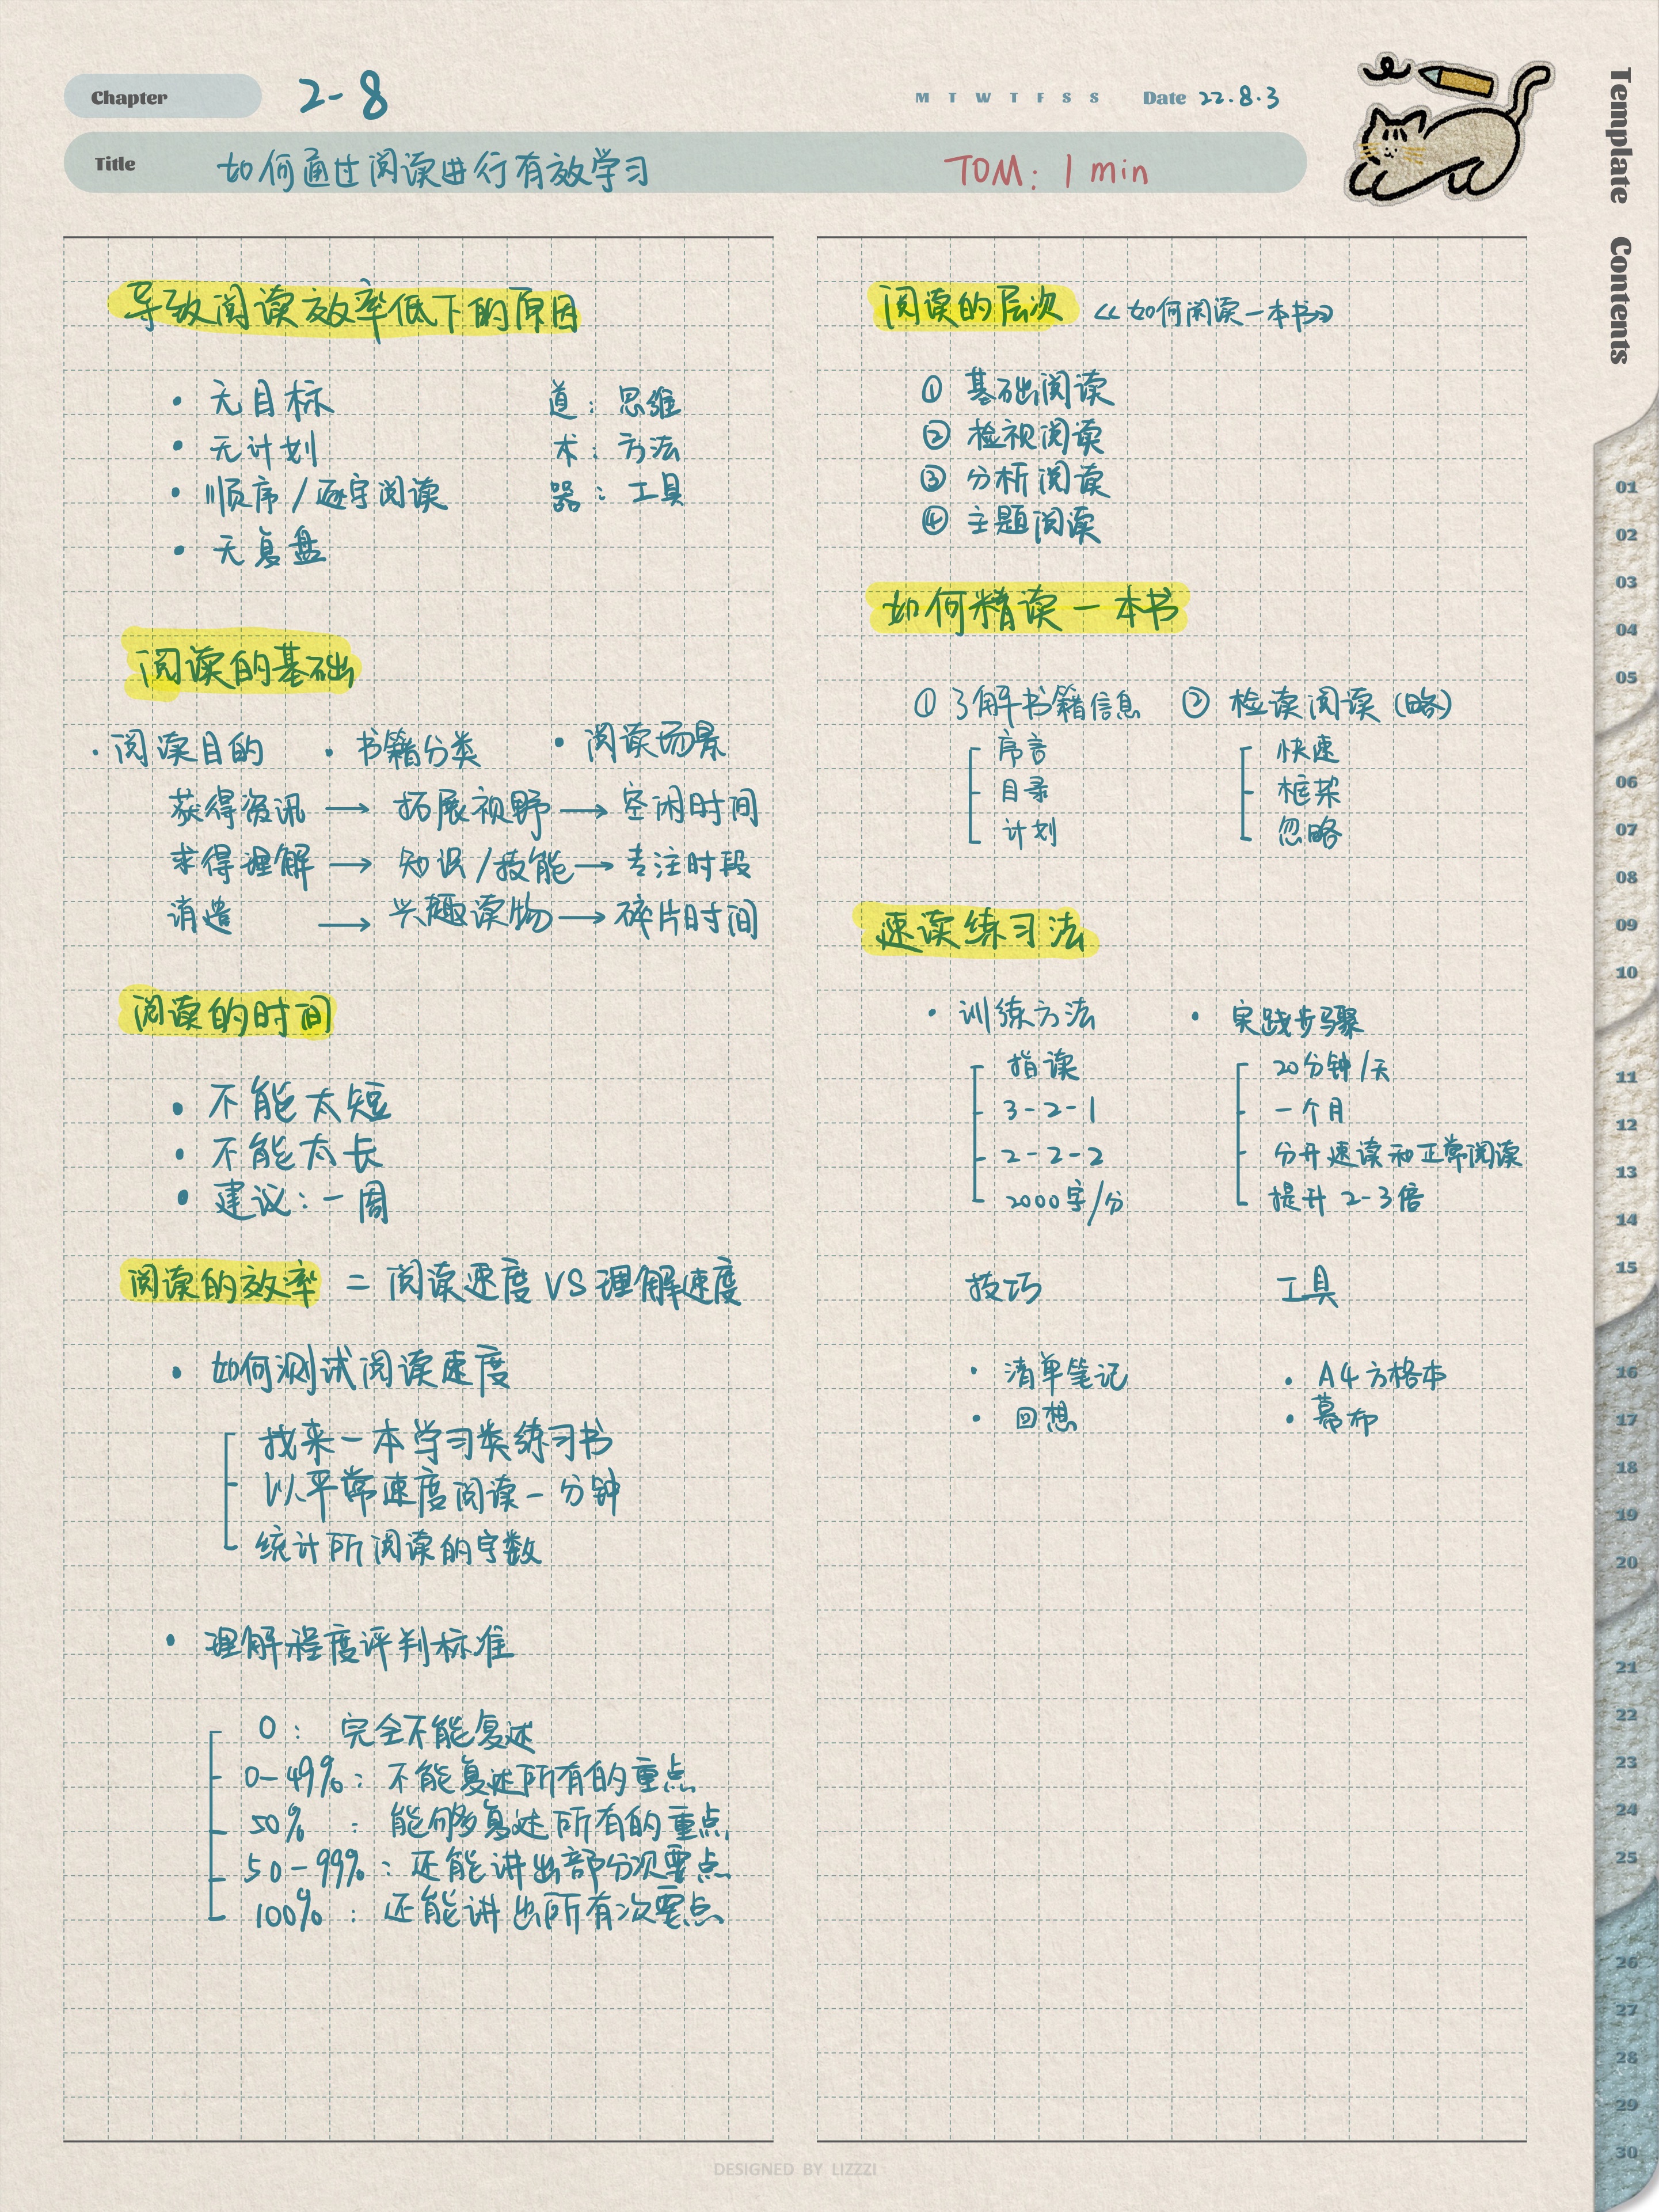 Chapter 2-8
M T W T F S S Date 22.8.3
Title 如何通过阅读进行有效学习 TOM: 1 min
Template Contents
导致阅读效率低下的原因
• 无目标 道: 思维
• 无计划 术: 方法
• 顺序/逐字阅读 器: 工具
• 无复盘
阅读的基础
· 阅读目的 · 书籍分类 · 阅读场景
获得资讯 → 拓展视野 → 空闲时间
求得理解 → 知识/技能 → 专注时段
消遣 → 兴趣读物 → 碎片时间
阅读的时间
• 不能太短
• 不能太长
• 建议: 一周
阅读的效率 = 阅读速度 VS 理解速度
• 如何测试阅读速度
找来一本学习类练习书
以平常速度阅读一分钟
统计所阅读的字数
• 理解程度评判标准
0: 完全不能复述
0-49%: 不能复述所有的重点
50%: 能够复述所有的重点
50-99%: 还能讲出部分次要点
100%: 还能讲出所有次要点
阅读的层次 《如何阅读一本书》
① 基础阅读
② 检视阅读
③ 分析阅读
④ 主题阅读
如何精读一本书
① 了解书籍信息 ② 检读阅读 (略)
序言 快速
目录 框架
计划 忽略
速读练习法
• 训练方法 • 实践步骤
指读 20分钟/天
3-2-1 一个月
2-2-2 分开速读和正常阅读
2000字/分 提升 2-3倍
技巧 工具
• 清单笔记 • A4方格本
• 回想 • 幕布
01
02
03
04
05
06
07
08
09
10
11
12
13
14
15
16
17
18
19
20
21
22
23
24
25
26
27
28
29
30
DESIGNED BY LIZZZI